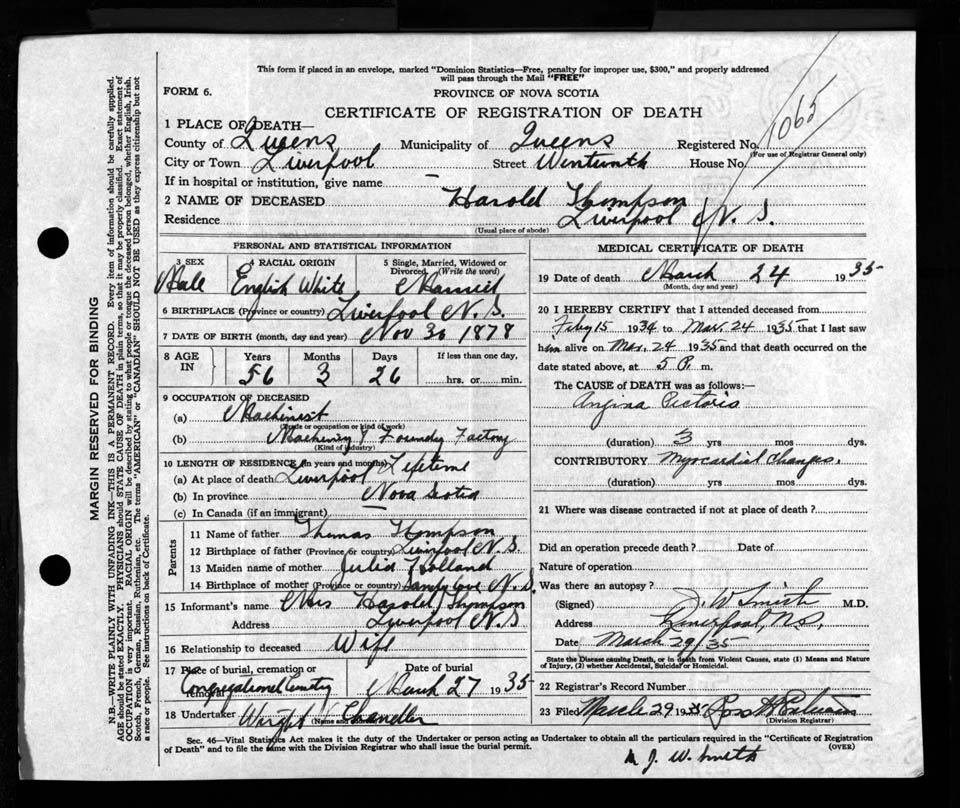 This form if placed in an envelope, marked "Dominion Statistics—Free, penalty for improper use, $300," and properly addressed
will pass through the Mail "FREE"
FORM 6.
PROVINCE OF NOVA SCOTIA
CERTIFICATE OF REGISTRATION OF DEATH
1065
1 PLACE OF DEATH—
County of Queens Municipality of Queens Registered No.
(For use of Registrar General only)
City or Town Liverpool Street House No.
If in hospital or institution, give name —
2 NAME OF DECEASED Harold Thompson
Residence Liverpool N. S.
(Usual place of abode)
PERSONAL AND STATISTICAL INFORMATION
3 SEX 4 RACIAL ORIGIN 5 Single, Married, Widowed or Divorced (Write the word)
Male English White Married
6 BIRTHPLACE (Province or country) Liverpool N. S.
7 DATE OF BIRTH (month, day and year) Nov 30 1878
8 AGE IN Years Months Days If less than one day,
56 3 26 hrs. or min.
9 OCCUPATION OF DECEASED
(a) Machinist
(Trade or occupation or kind of work)
(b) Machinery & Foundry Factory
(Kind of industry)
10 LENGTH OF RESIDENCE (in years and months)
(a) At place of death Liverpool Lifetime
(b) In province Nova Scotia
(c) In Canada (if an immigrant) —
Parents
11 Name of father Thomas Thompson
12 Birthplace of father (Province or country) Liverpool N. S.
13 Maiden name of mother Julia Holland
14 Birthplace of mother (Province or country) Sandy Cove N. S.
15 Informant's name Mrs Harold Thompson
Address Liverpool N S
16 Relationship to deceased Wife
17 Place of burial, cremation or removal Date of burial
Congregational Cemetry March 27 1935
18 Undertaker Chandler
(Name and address)
MEDICAL CERTIFICATE OF DEATH
19 Date of death March 24 1935
(Month, day and year)
20 I HEREBY CERTIFY that I attended deceased from
Feby 15 1934 to Mar. 24 1935 that I last saw
him alive on Mar. 24 1935 and that death occurred on the
date stated above, at 5 P. m.
The CAUSE of DEATH was as follows:—
Angina Pectoris
(duration) 3 yrs mos dys.
CONTRIBUTORY Myocardial Changes.
(duration) yrs. mos. dys.
21 Where was disease contracted if not at place of death?
Did an operation precede death? Date of
Nature of operation
Was there an autopsy?
(Signed) J. W Smith M.D.
Address Liverpool, N.S.
Date March 29/35
State the Disease causing Death, or in death from Violent Causes, state (1) Means and Nature
of Injury, (2) whether Accidental, Suicidal or Homicidal.
22 Registrar's Record Number
23 Filed March 29 1935 Ross
(Division Registrar)
Sec. 46—Vital Statistics Act makes it the duty of the Undertaker or person acting as Undertaker to obtain all the particulars required in the "Certificate of Registration
of Death" and to file the same with the Division Registrar who shall issue the burial permit.
(OVER)
J. W. Smith
MARGIN RESERVED FOR BINDING
N.B.—WRITE PLAINLY WITH UNFADING INK—THIS IS A PERMANENT RECORD. Every item of information should be carefully supplied.
AGE should be stated EXACTLY. PHYSICIANS should STATE CAUSE OF DEATH in plain terms, so that it may be properly classified. Exact statement of
OCCUPATION is very important. RACIAL ORIGIN will be described by stating to what people or tongue the deceased person belonged, whether English, Irish,
Scotch, French, German, Russian, Ruthenian, etc. The terms "AMERICAN" or "CANADIAN" SHOULD NOT BE USED as they express citizenship but not
a race or people. See instructions on back of Certificate.